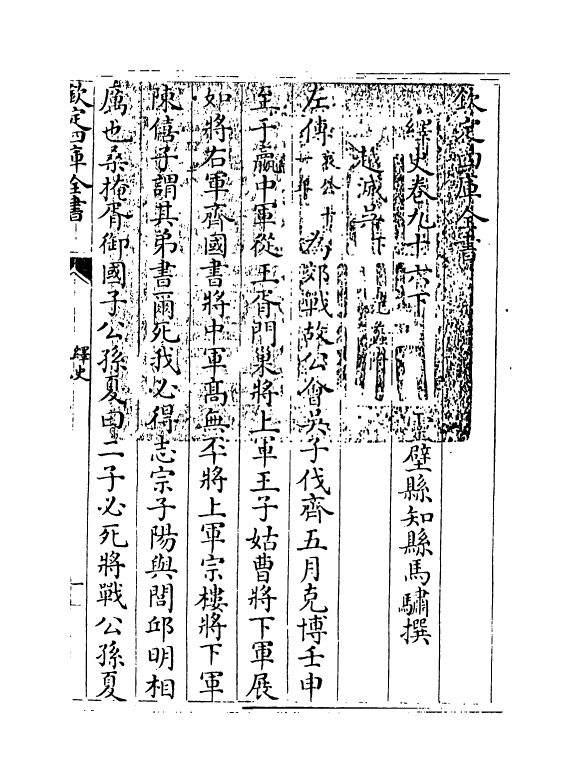 欽定四庫全書
繹史卷九十六下
靈壁縣知縣馬驌撰
越滅吳下
左傳哀公十一年為郊戰故公會吳子伐齊五月克博壬申
至于嬴中軍從王胥門巢將上軍王子姑曹將下軍展
如將右軍齊國書將中軍高無㔻將上軍宗樓將下軍
陳僖子謂其弟書爾死我必得志宗子陽與閭邱明相
厲也桑掩胥御國子公孫夏曰二子必死將戰公孫夏
欽定四庫全書
繹史